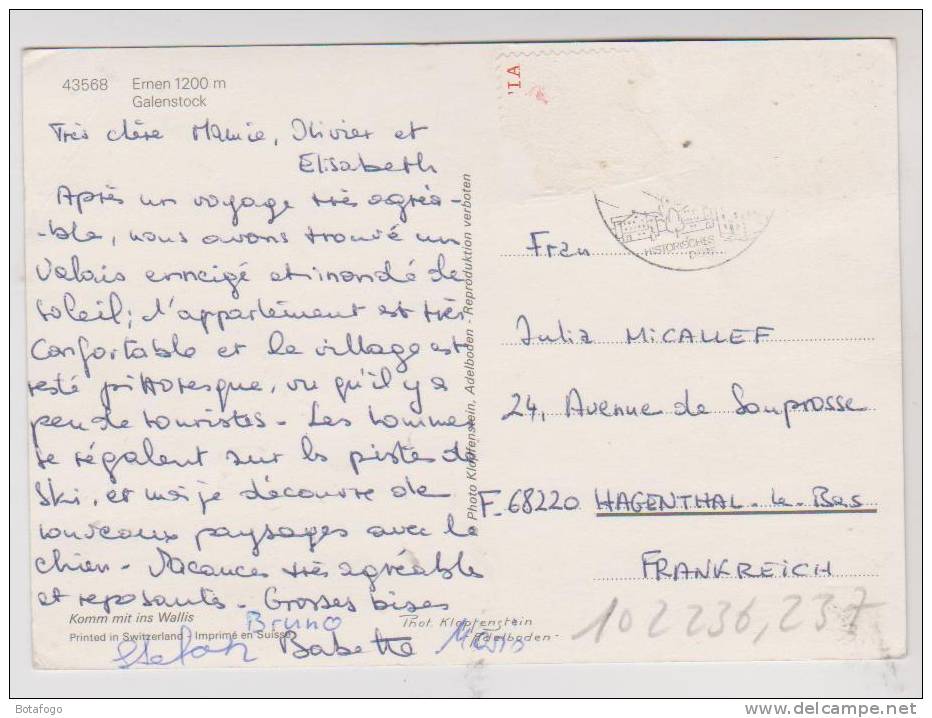 43568 Ernen 1200 m
Galenstock
Très chère Mamie, Olivier et
Elisabeth
Après un voyage très agréa-
-ble, nous avons trouvé un
Valais enneigé et inondé de
soleil; l'appartement est très
confortable et le village est
resté pittoresque, vu qu'il y a
peu de touristes - Les hommes
se régalent sur les pistes de
ski, et moi je découvre de
nouveaux paysages avec le
chien - Vacances très agréables
et reposantes - Grosses bises
Komm mit ins Wallis
Bruno
Printed in Switzerland Imprimé en Suisse
Stefan Babette
Phot. Klopfenstein
Adelboden
Photo Klopfenstein, Adelboden - Reproduktion verboten
HISTORISCHES
Frau
Julia MICALLEF
24, Avenue de Souprosse
F. 68220 HAGENTHAL-le-Bas
FRANKREICH
102236,237
Botafogo
www.delcampe.net